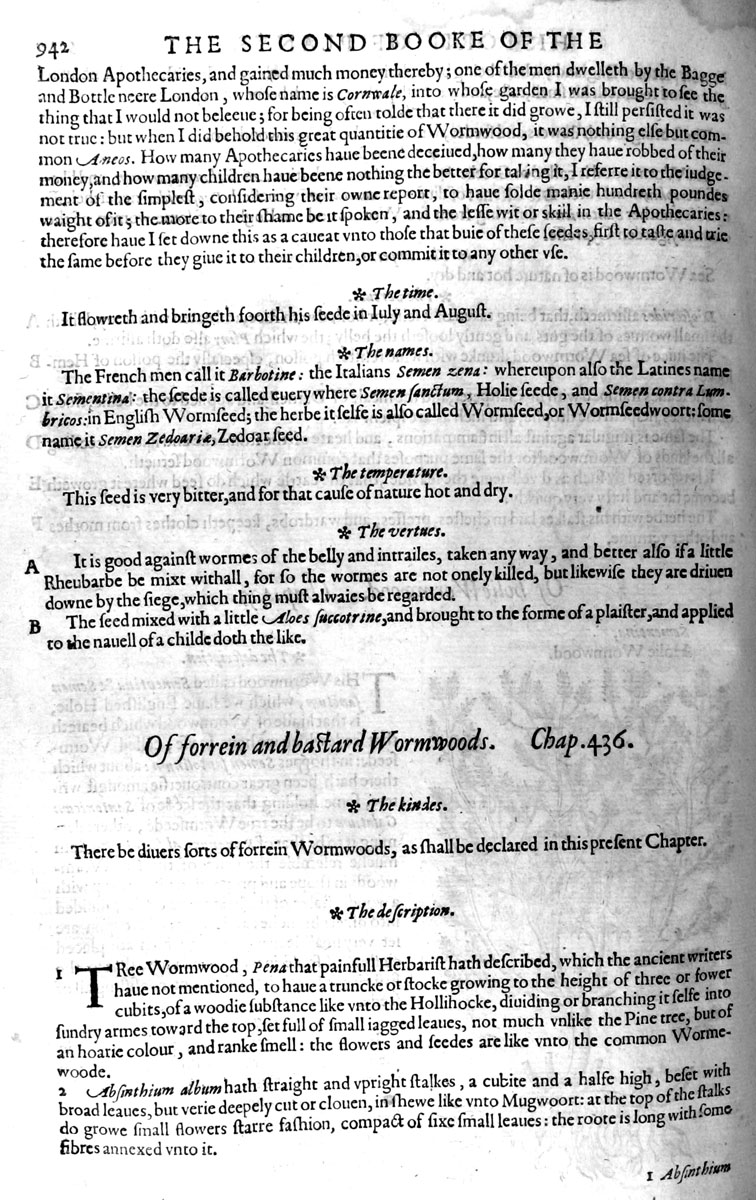 942 THE SECOND BOOKE OF THE
London Apothecaries, and gained much money thereby; one of the men dwelleth by the Bagge
and Bottle neere London, whoſe name is Cornwale, into whoſe garden I was brought to ſee the
thing that I would not beleeue; for being often tolde that there it did growe, I ſtill perſiſted it was
not true: but when I did behold this great quantitie of Wormwood, it was nothing elſe but com-
mon Ameos. How many Apothecaries haue beene deceiued, how many they haue robbed of their
money, and how many children haue beene nothing the better for taking it, I referre it to the iudge-
ment of the ſimpleſt, conſidering their owne report, to haue ſolde manie hundreth poundes
waight of it; the more to their ſhame be it ſpoken, and the leſſe wit or skill in the Apothecaries:
therefore haue I ſet downe this as a caueat vnto thoſe that buie of theſe ſeedes, firſt to taſte and trie
the ſame before they giue it to their children, or commit it to any other vſe.
✽ The time.
It flowreth and bringeth foorth his ſeede in Iuly and Auguſt.
✽ The names.
The French men call it Barbotine: the Italians Semen zena: whereupon alſo the Latines name
it Sementina: the ſeede is called euery where Semen ſanctum, Holie ſeede, and Semen contra Lum-
bricos: in Engliſh Wormſeed; the herbe it ſelfe is alſo called Wormſeed, or Wormſeedwoort: ſome
name it Semen Zedoariæ, Zedoar ſeed.
✽ The temperature.
This ſeed is very bitter, and for that cauſe of nature hot and dry.
✽ The vertues.
A It is good againſt wormes of the belly and intrailes, taken any way, and better alſo if a little
Rheubarbe be mixt withall, for ſo the wormes are not onely killed, but likewiſe they are driuen
downe by the ſiege, which thing muſt alwaies be regarded.
B The ſeed mixed with a little Aloes ſuccotrine, and brought to the forme of a plaiſter, and applied
to the nauell of a childe doth the like.
Of forrein and baſtard Wormwoods. Chap. 436.
✽ The kindes.
There be diuers ſorts of forrein Wormwoods, as ſhall be declared in this preſent Chapter.
✽ The deſcription.
1 TRee Wormwood, Pena that painfull Herbariſt hath deſcribed, which the ancient writers
haue not mentioned, to haue a truncke or ſtocke growing to the height of three or fower
cubits, of a woodie ſubſtance like vnto the Hollihocke, diuiding or branching it ſelfe into
ſundry armes toward the top, ſet full of ſmall iagged leaues, not much vnlike the Pine tree, but of
an hoarie colour, and ranke ſmell: the flowers and ſeedes are like vnto the common Worme-
woode.
2 Abſinthium album hath ſtraight and vpright ſtalkes, a cubite and a halfe high, beſet with
broad leaues, but verie deepely cut or clouen, in ſhewe like vnto Mugwoort: at the top of the ſtalks
do growe ſmall flowers ſtarre faſhion, compact of ſixe ſmall leaues: the roote is long with ſome
fibres annexed vnto it.
1 Abſinthium